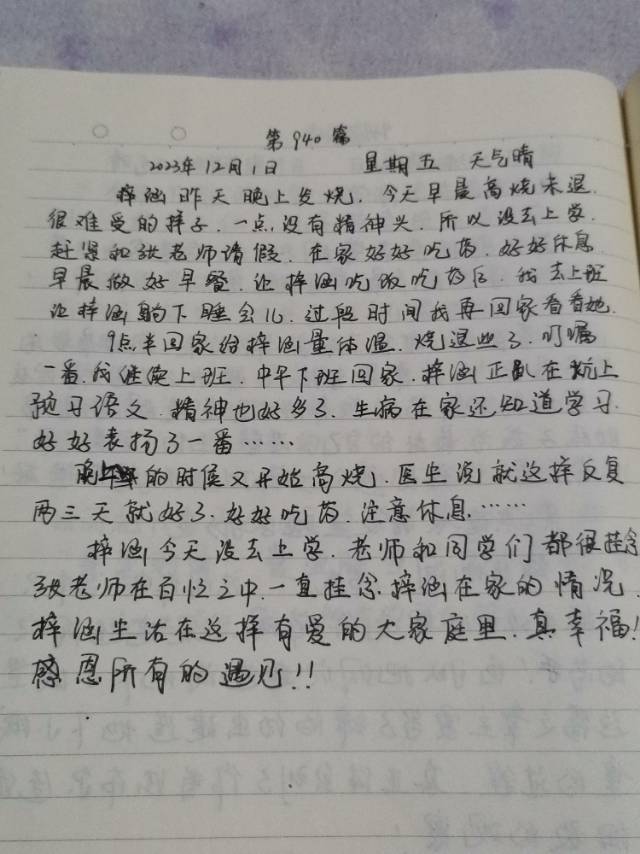 第940篇
2023年12月1日 星期五 天气晴
梓涵昨天晚上发烧，今天早晨高烧未退，
很难受的样子，一点没有精神头，所以没去上学，
赶紧和张老师请假，在家好好吃药，好好休息
早晨做好早餐，让梓涵吃饭吃药后，我去上班
让梓涵躺下睡会儿，过段时间我再回家看看她。
9点半回家给梓涵量体温，烧退些了，叮嘱
一番，我继续上班，中午下班回家，梓涵正趴在炕上
预习语文，精神也好多了，生病在家还知道学习，
好好表扬了一番……
晚上的时候又开始高烧，医生说就这样反复
两三天就好了，好好吃药，注意休息……
梓涵今天没去上学，老师和同学们都很挂念
张老师在百忙之中，一直挂念梓涵在家的情况，
梓涵生活在这样有爱的大家庭里，真幸福！
感恩所有的遇见！！